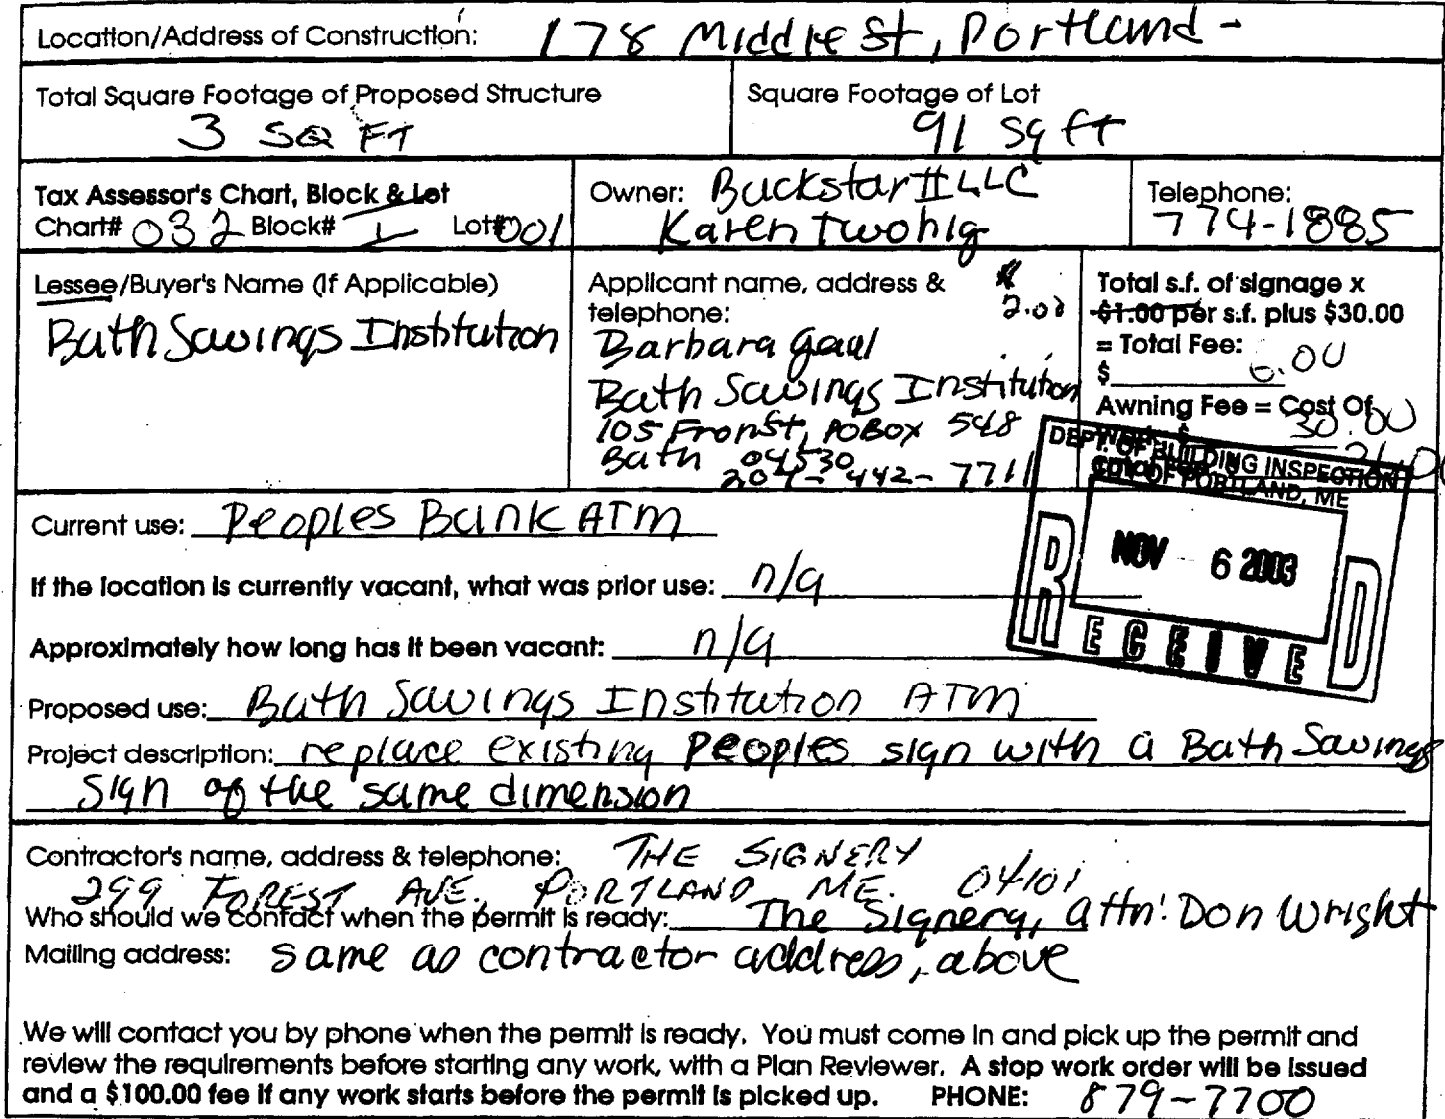 Location/Address of Construction: 178 Middle St, Portland -
Total Square Footage of Proposed Structure
3 SQ FT
Square Footage of Lot
91 Sq ft
Tax Assessor's Chart, Block & Lot
Chart# 032 Block# I Lot# 001
Owner: Buckstar II LLC
Karen Twohig
Telephone:
774-1885
Lessee/Buyer's Name (If Applicable)
Bath Savings Institution
Applicant name, address &
telephone:
Barbara Gaul
Bath Savings Institution
105 Front St, PO BOX 548
Bath 04530
207-442-7711
$
2.00
Total s.f. of signage x
$1.00 per s.f. plus $30.00
= Total Fee:
$ 6.00
Awning Fee = Cost Of
30.00
DEPT. OF BUILDING INSPECTION
CITY OF PORTLAND, ME
NOV - 6 2003
RECEIVED
Current use: Peoples Bank ATM
If the location is currently vacant, what was prior use: n/a
Approximately how long has it been vacant: n/a
Proposed use: Bath Savings Institution ATM
Project description: replace existing Peoples sign with a Bath Savings
sign of the same dimension
Contractor's name, address & telephone: THE SIGNERY
299 FOREST AVE. PORTLAND ME. 04101
Who should we contact when the permit is ready: The Signery, attn: Don Wright
Mailing address: same as contractor address, above
We will contact you by phone when the permit is ready. You must come in and pick up the permit and
review the requirements before starting any work, with a Plan Reviewer. A stop work order will be issued
and a $100.00 fee if any work starts before the permit is picked up. PHONE: 879-7700